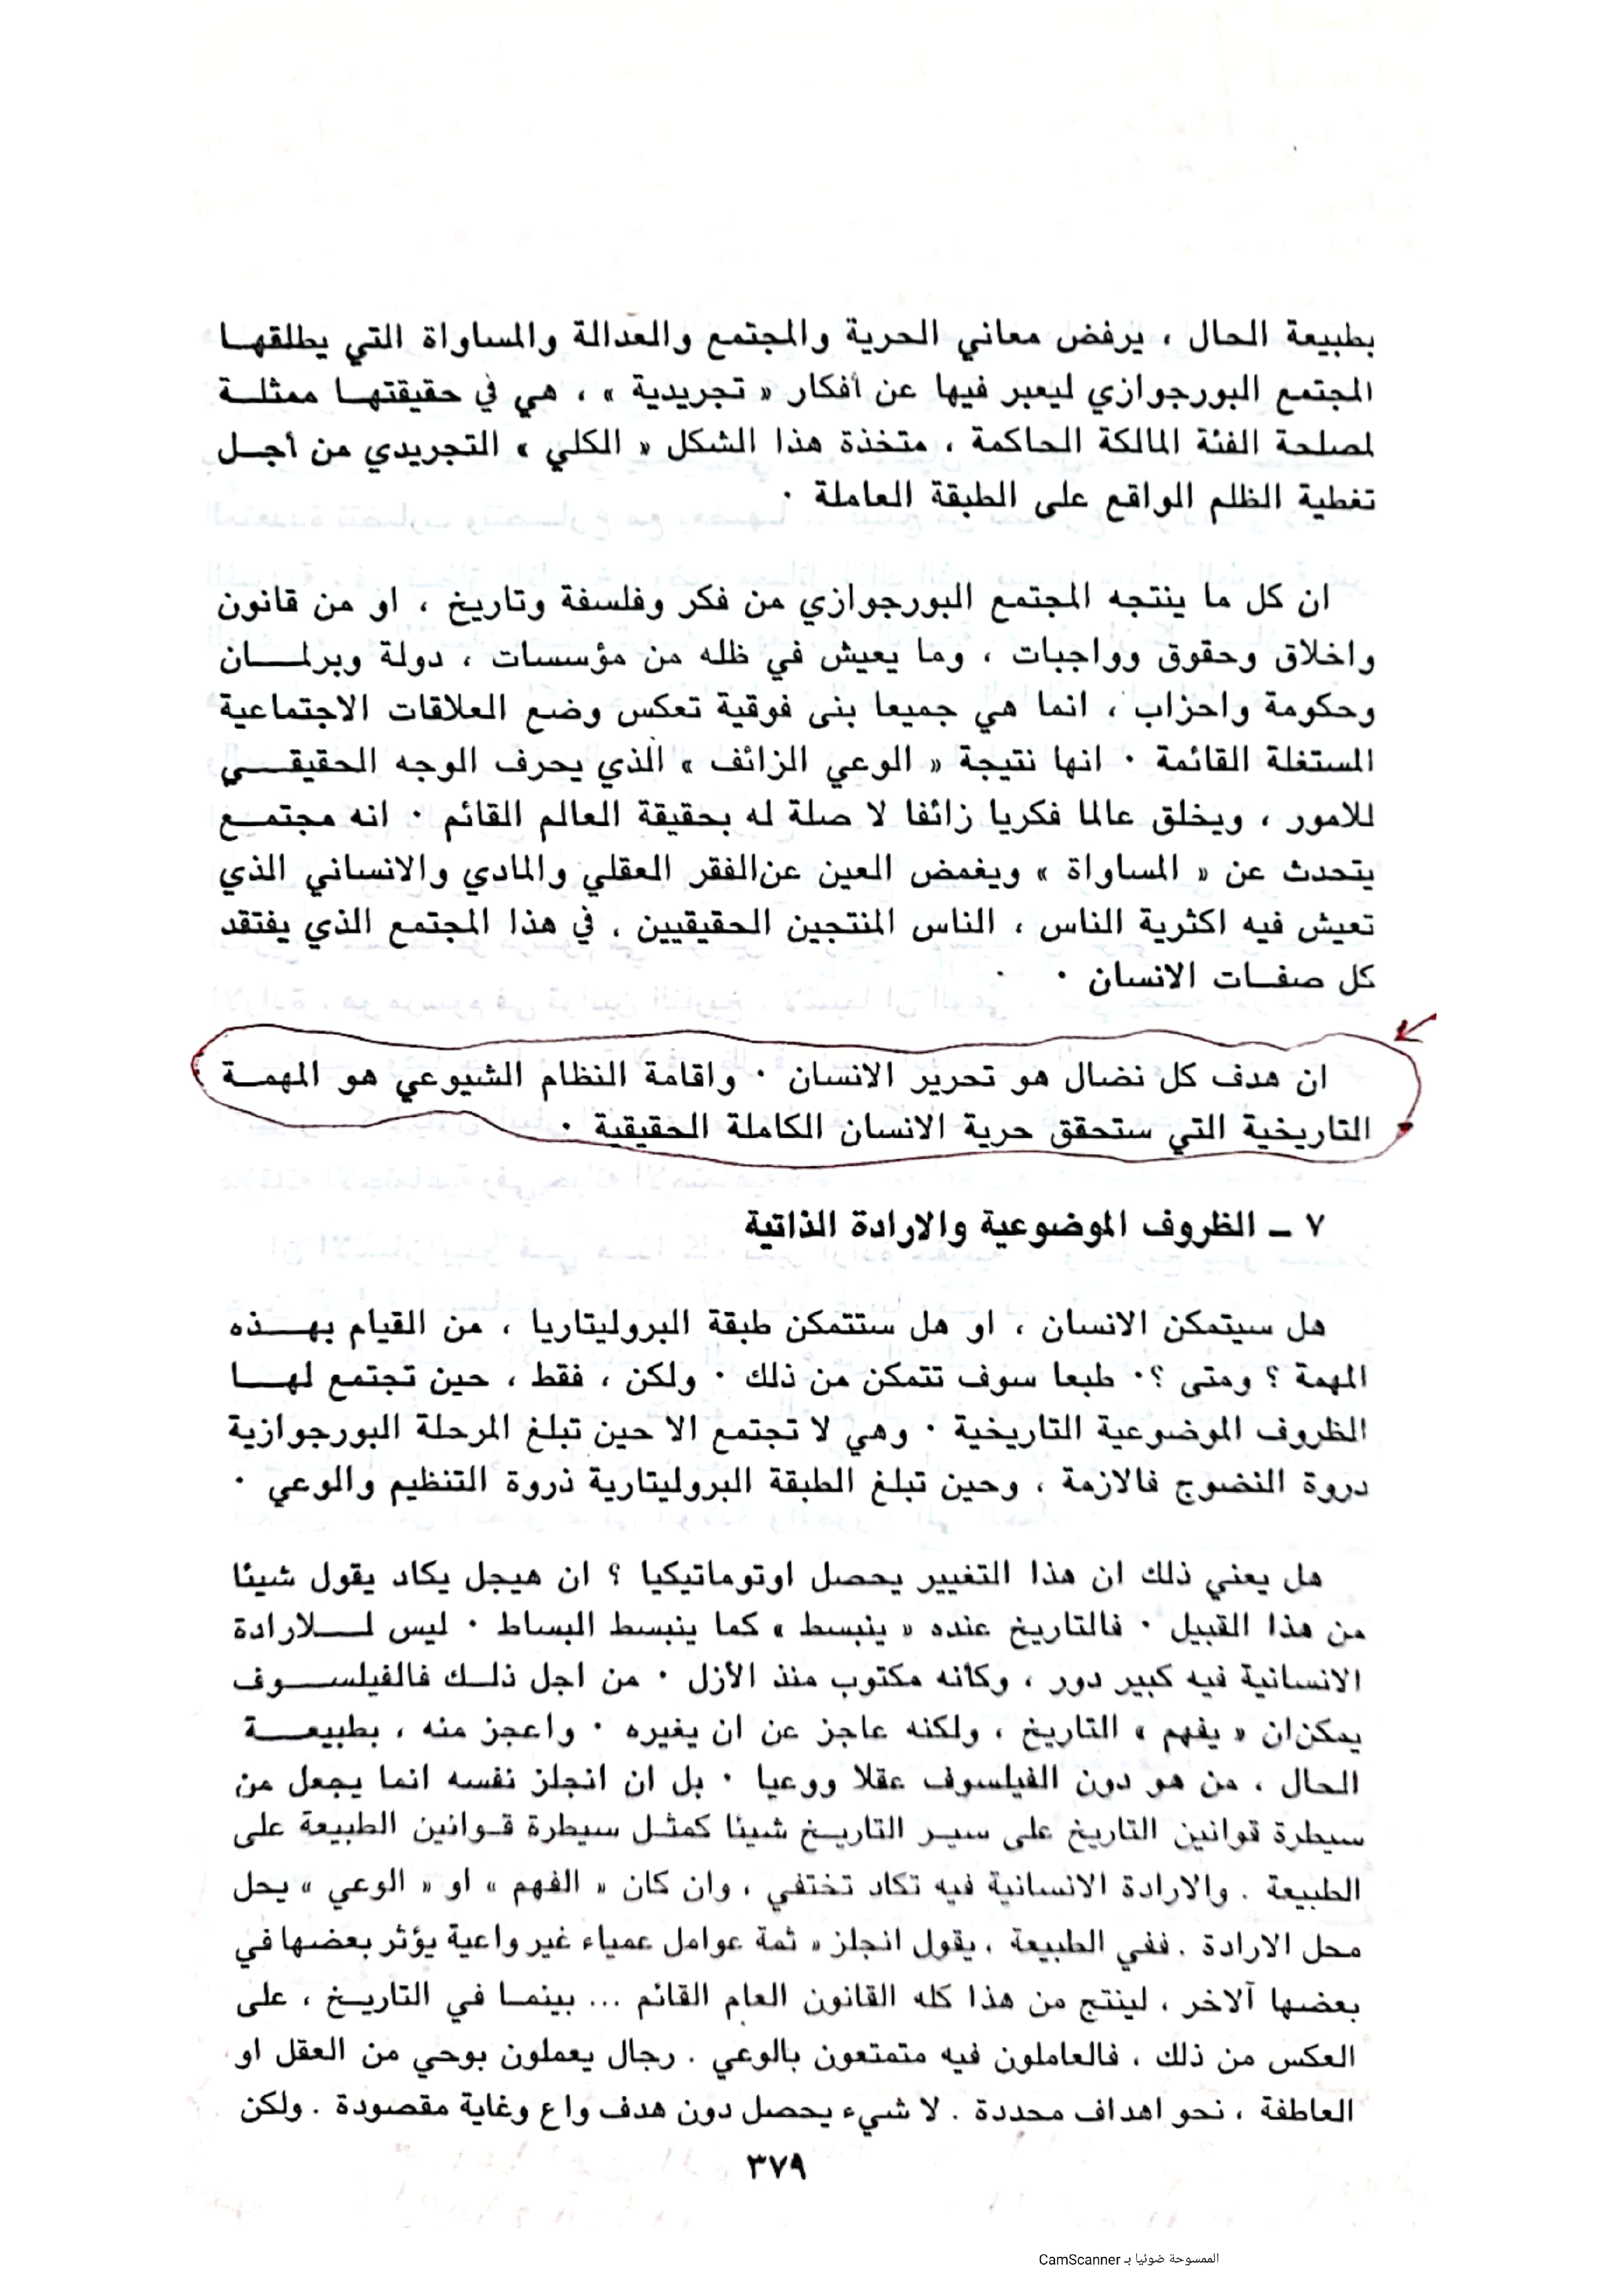 بطبيعة الحال ، يرفض معاني الحرية والمجتمع والعدالة والمساواة التي يطلقهـا
المجتمع البورجوازي ليعبر فيها عن أفكار « تجريدية » ، هي في حقيقتهـا ممثلـة
لصلحة الفئة المالكة الحاكمة ، متخذة هذا الشكل « الكلي » التجريدي من أجـل
تغطية الظلم الواقع على الطبقة العاملة ٠
ان كل ما ينتجه المجتمع البورجوازي من فكر وفلسفة وتاريخ ، او من قانون
واخلاق وحقوق وواجبات ، وما يعيش في ظله من مؤسسات ، دولة وبرلمـــان
وحكومة واحزاب ، انما هي جميعا بنى فوقية تعكس وضع العلاقات الاجتماعية
المستغلة القائمة ٠ انها نتيجة « الوعي الزائف » الذي يحرف الوجه الحقيقـــي
للامور ، ويخلق عالما فكريا زائفا لا صلة له بحقيقة العالم القائم ٠ انه مجتمــع
يتحدث عن « المساواة » ويغمض العين عن الفقر العقلي والمادي والانساني الذي
تعيش فيه اكثرية الناس ، الناس المنتجين الحقيقيين ، في هذا المجتمع الذي يفتقد
كل صفـات الانسان ٠
ان هدف كل نضال هو تحرير الانسان ٠ واقامة النظام الشيوعي هو المهمـة
التاريخية التي ستحقق حرية الانسان الكاملة الحقيقية ٠
٧ ــ الظروف الموضوعية والارادة الذاتية
هل سيتمكن الانسان ، او هل ستتمكن طبقة البروليتاريا ، من القيام بهـــذه
المهمة ؟ ومتى ؟٠ طبعا سوف تتمكن من ذلك ٠ ولكن ، فقط ، حين تجتمع لهـــا
الظروف الموضوعية التاريخية ٠ وهي لا تجتمع الا حين تبلغ المرحلة البورجوازية
دروة النضوج فالازمة ، وحين تبلغ الطبقة البروليتارية ذروة التنظيم والوعي ٠
هل يعني ذلك ان هذا التغيير يحصل اوتوماتيكيا ؟ ان هيجل يكاد يقول شيئا
من هذا القبيل ٠ فالتاريخ عنده « ينبسط » كما ينبسط البساط ٠ ليس لـــلارادة
الانسانية فيه كبير دور ، وكأنه مكتوب منذ الأزل ٠ من اجل ذلـك فالفيلســـوف
يمكن ان « يفهم » التاريخ ، ولكنه عاجز عن ان يغيره ٠ واعجز منه ، بطبيعـــة
الحال ، من هو دون الفيلسوف عقلا ووعيا ٠ بل ان انجلز نفسه انما يجعل من
سيطرة قوانين التاريخ على سيـر التاريـخ شيئا كمثـل سيطرة قـوانين الطبيعة على
الطبيعة . والارادة الانسانية فيه تكاد تختفي ، وان كان « الفهم » او « الوعي » يحل
محل الارادة . ففي الطبيعة ، يقول انجلز « ثمة عوامل عمياء غير واعية يؤثر بعضها في
بعضها آلاخر ، لينتج من هذا كله القانون العام القائم ... بينمـا في التاريـخ ، على
العكس من ذلك ، فالعاملون فيه متمتعون بالوعي . رجال يعملون بوحي من العقل او
العاطفة ، نحو اهداف محددة . لا شيء يحصل دون هدف واع وغاية مقصودة . ولكن
٣٧٩
الممسوحة ضوئيا بـ CamScanner